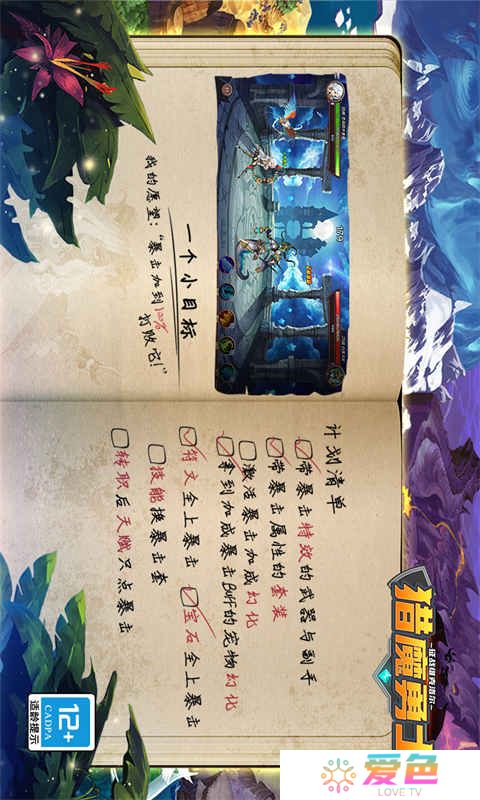 猎魔勇士
-征战塔克塔尔-
一个小目标
我的愿望：“暴击加到100%
打败它！”
169
计划清单
带暴击特效的武器与副手
带暴击属性的套装
激活暴击加成幻化
拿到加成暴击Buff的宠物幻化
符文全上暴击
宝石全上暴击
技能换暴击套
转职后天赋只点暴击
12+
CADPA
适龄提示
爱色
LOVE.TV